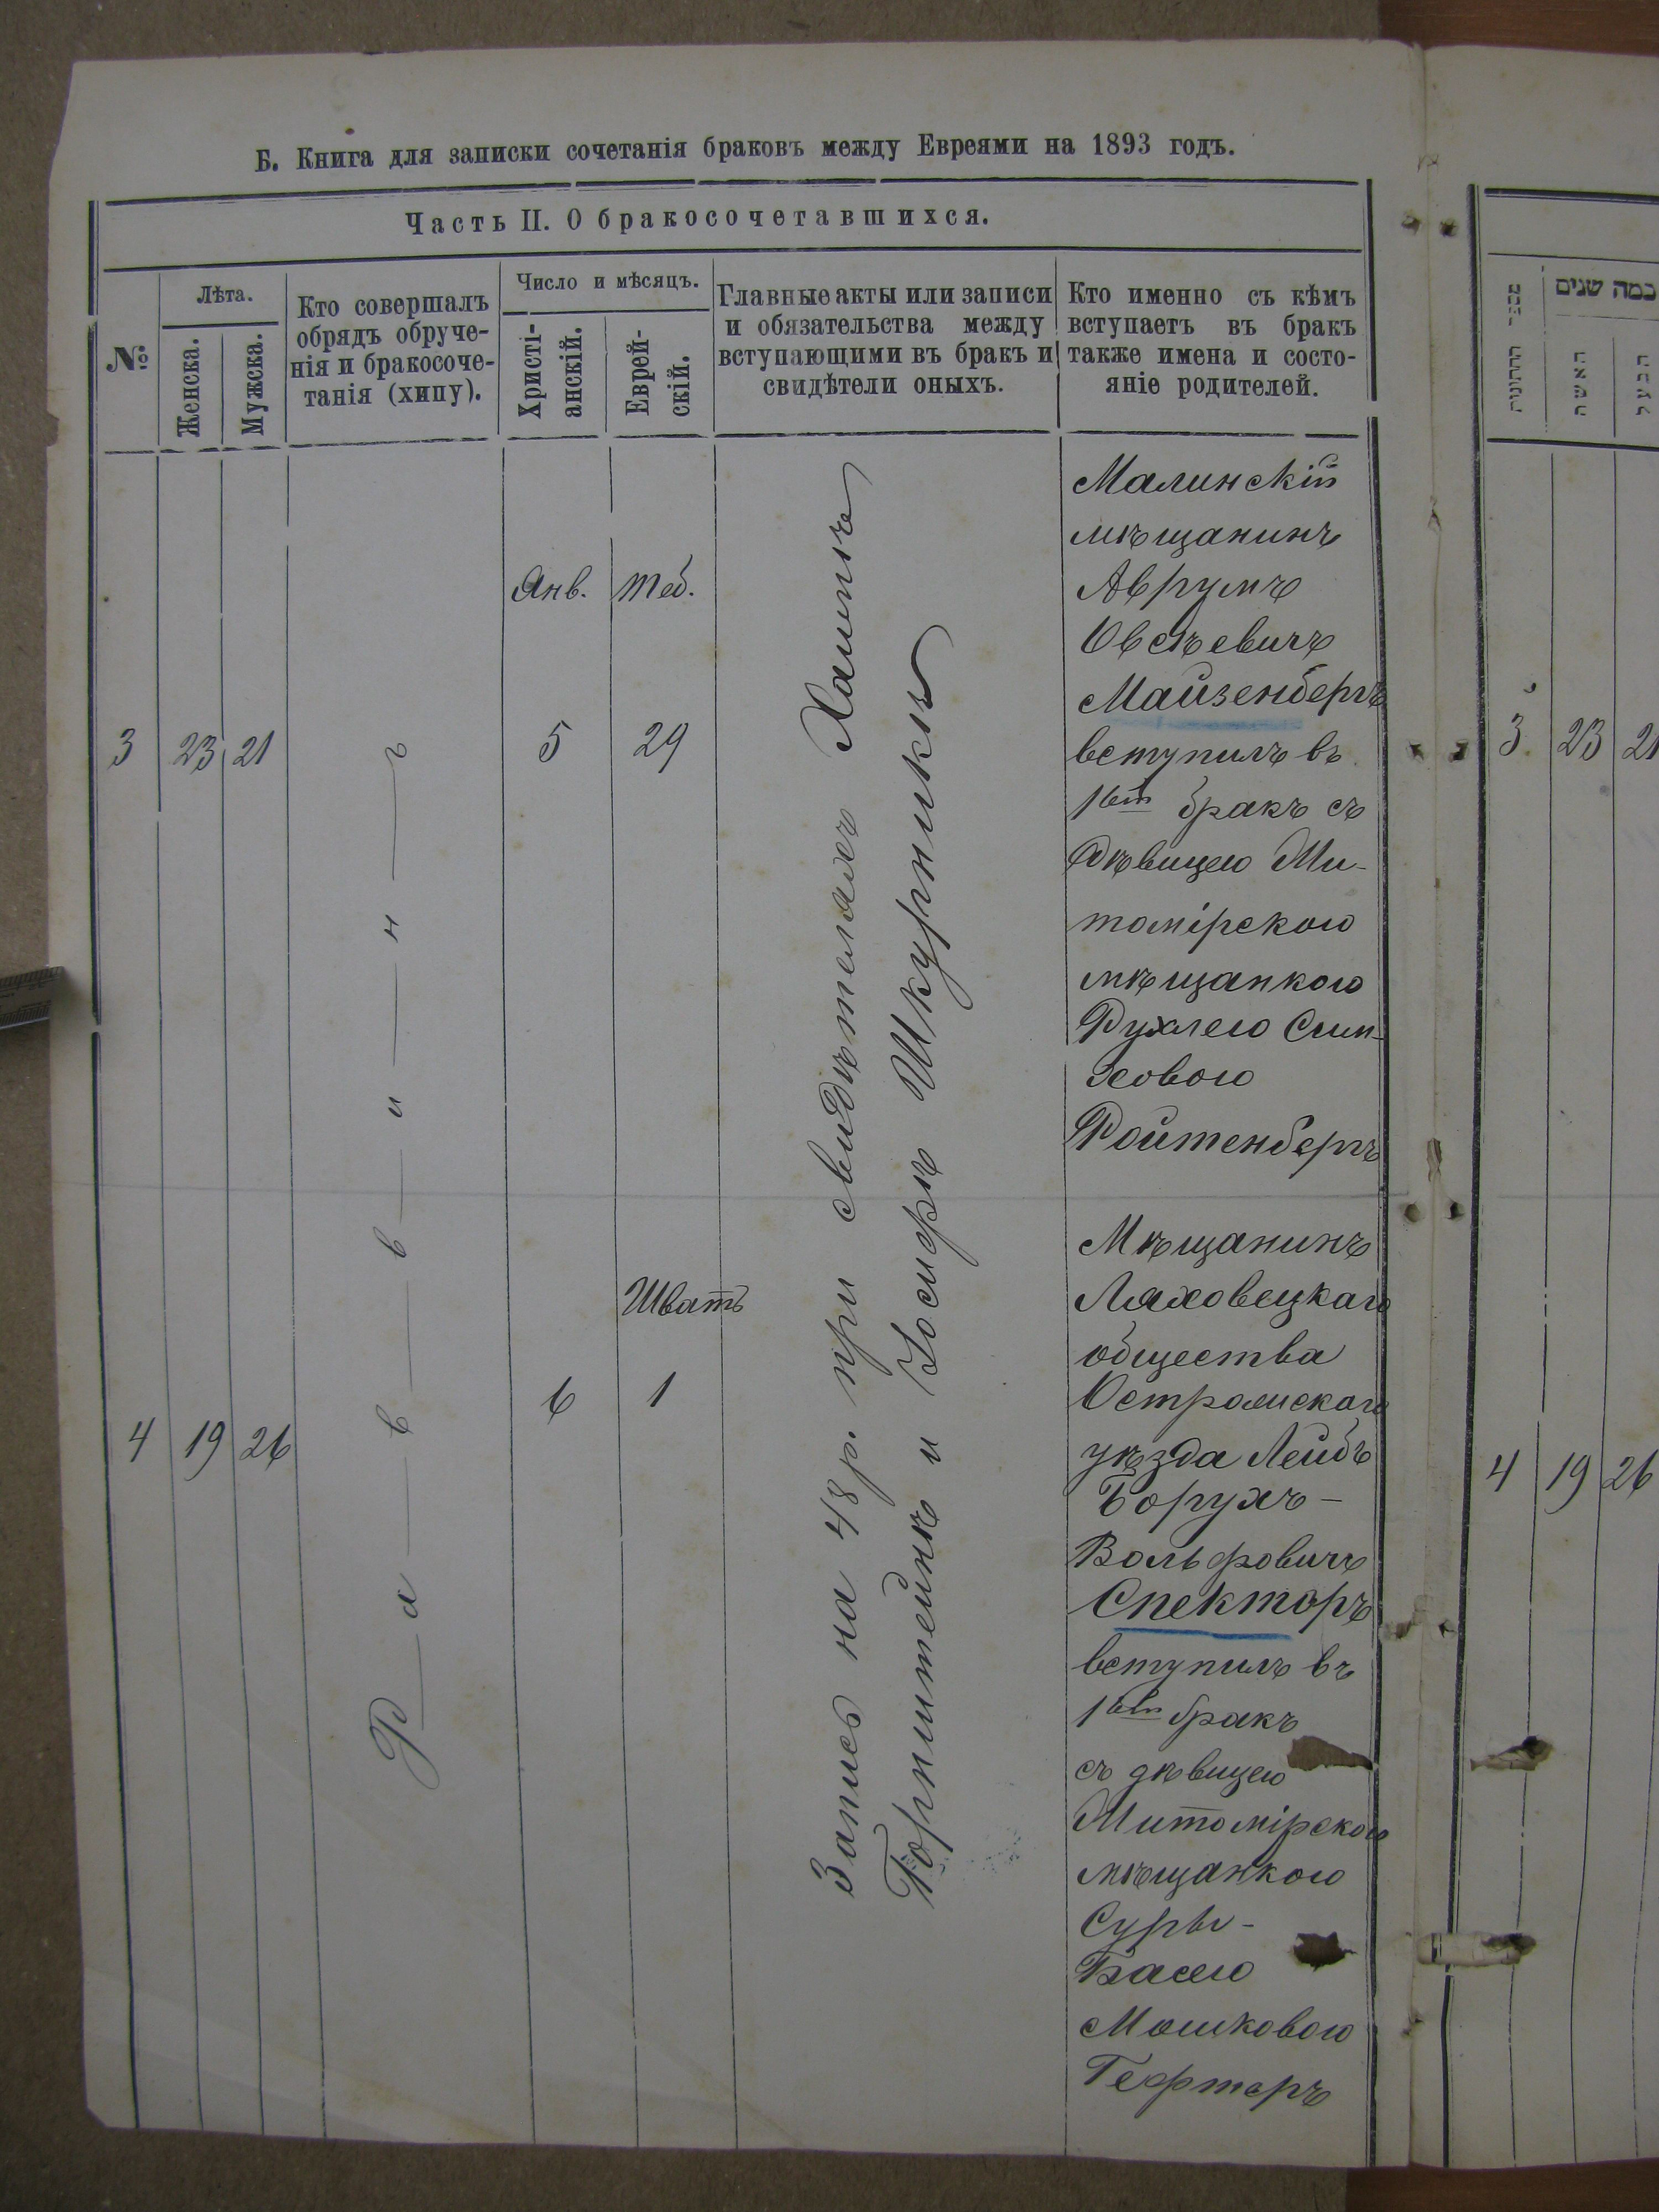 Б. Книга для записки сочетанія браковъ между Евреями на 1893 годъ.
Часть II. О бракосочетавшихся.
№
Лѣта.
Женска.
Мужска.
Кто совершалъ
обрядъ обруче-
нія и бракосоче-
танія (хипу).
Число и мѣсяцъ.
Христі-
анскій.
Еврей-
скій.
Главные акты или записи
и обязательства между
вступающими въ бракъ и
свидѣтели оныхъ.
Кто именно съ кѣмъ
вступаетъ въ бракъ
также имена и состо-
яніе родителей.
Раввинъ
Запись на 48 р. при свидѣтеляхъ Хаимъ
Горнштейнъ и Іосифъ Шкурникъ
Янв. Теб.
3 23 21 5 29
Малинскій
мѣщанинъ
Аврумъ
Овсѣевичъ
Майзенбергъ
вступилъ въ
1вый бракъ съ
дѣвицею Жи-
томірскою
мѣщанкою
Рухлею Сим-
ховою
Ройтенбергъ
Шватъ
4 19 26 6 1
Мѣщанинъ
Ляховецкаго
общества
Острожскаго
уѣзда Лейбъ
Борухъ-
Вольфовичъ
Спекторъ
вступилъ въ
1вый бракъ
съ дѣвицею
Житомірскою
мѣщанкою
Суры-
Басею
Мошковою
Гефтеръ
כמה שנים
האשה
הבעל
3 23 21
4 19 26